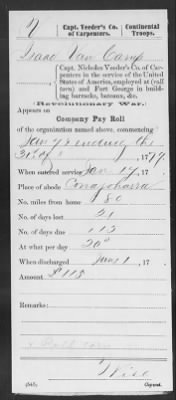 V
Capt. Veeder's Co. of Carpenters.
Continental Troops.
Isaac Van Camp
Capt. Nicholas Veeder's Co. of Carpenters in the service of the United States of America, employed at (ball town) and Fort George in building barracks, bateaux, &c.
(Revolutionary War.)
Appears on
Company Pay Roll
of the organization named above, commencing
Jan 9 & ending the
31st of 1779.
When entered service Jan 17, 17
Place of abode Conajoharra
No. miles from home 80
No. of days lost 21
No. of days due 113
At what per day 20/
When discharged June 1, 17
Amount $113
Remarks:
Ball town
Wise
(545) Copyist.